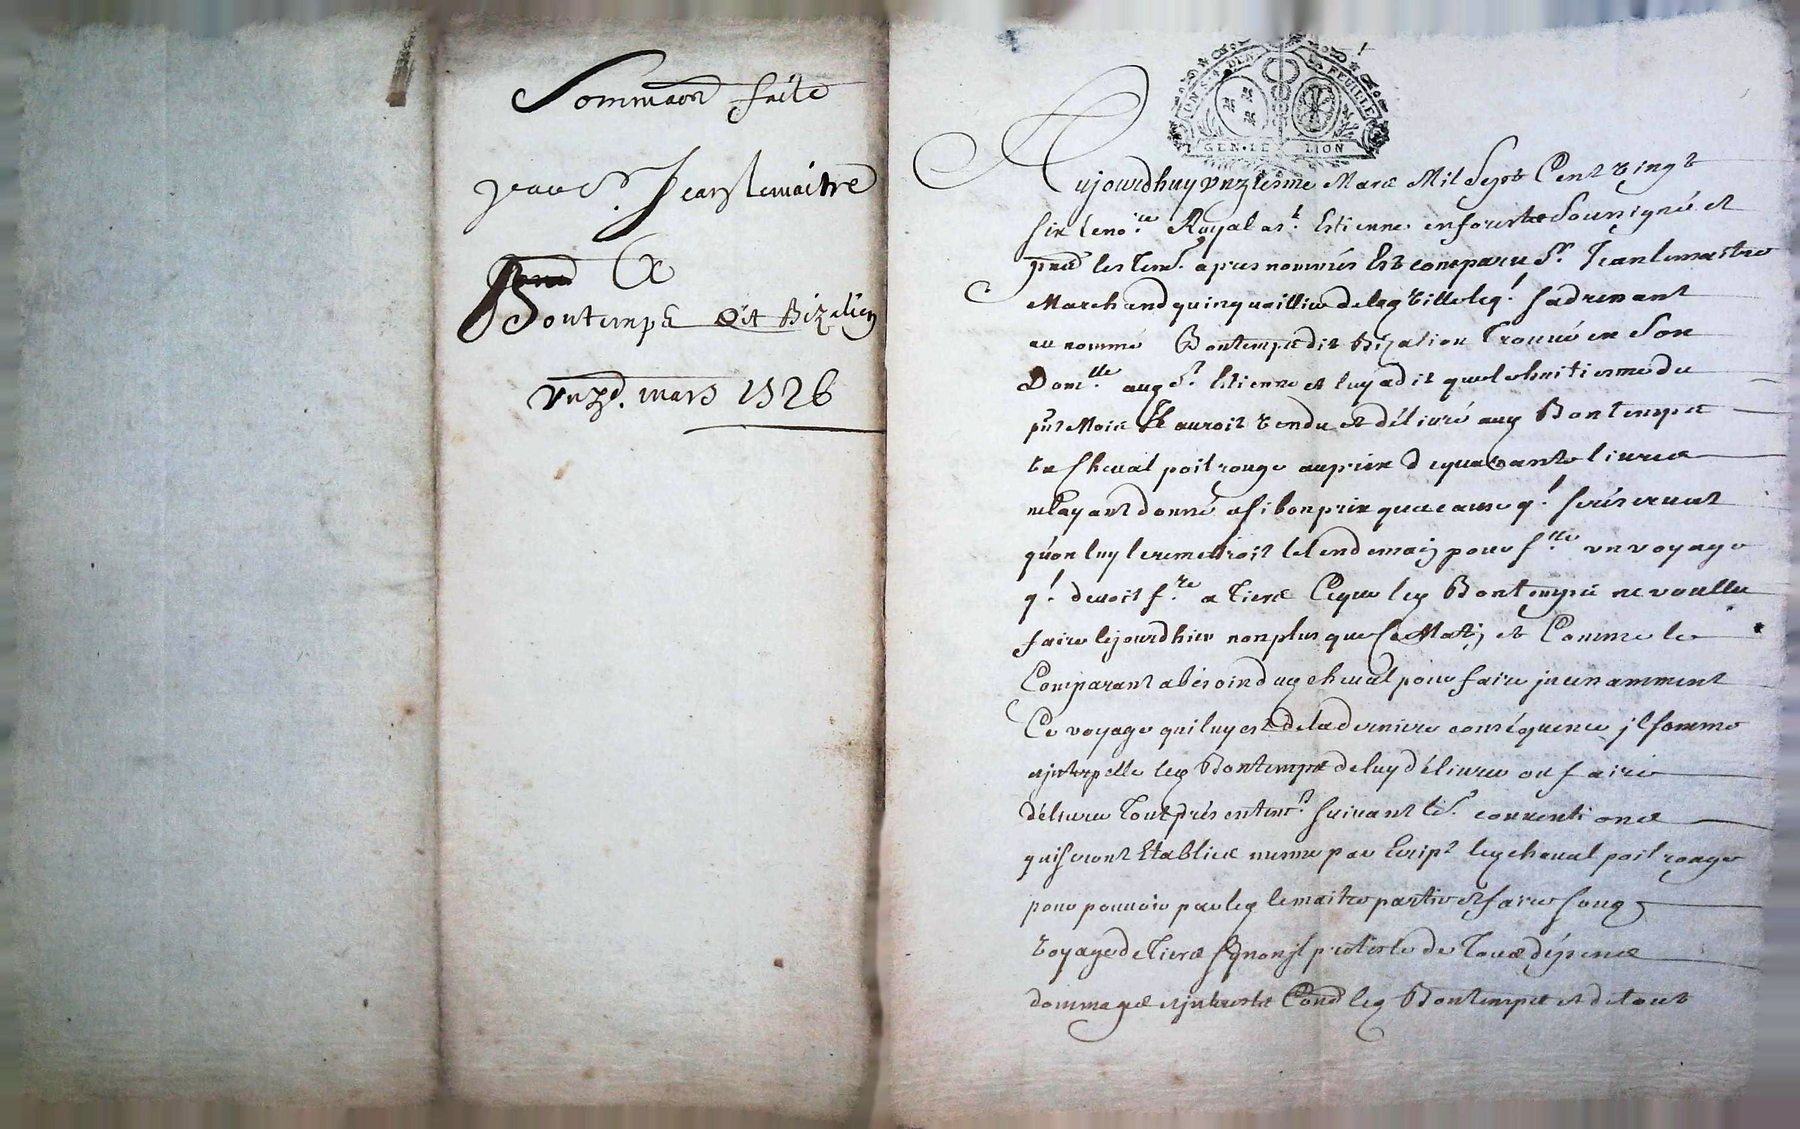 Sommaon faite
par Sr. Jean Lemaitre
Contre
Bontemps dit Bizalion
unz. mars 1726
GEN. LION
LA FEUILLE
Aujourdhuy unziesme Mars Mil Sept Cent vingt
six le nore. Royal a st. Estienne en fourest Soussigné et
pnt les tem. apres nommés Est comparu Sr. Jean lemaitre
Marchand quinquaillier de lad ville leql. sadressant
au nommé Bontemps dit Bizalion trouvé en son
Domlle aud St. Etienne et luy a dit que le huitiesme du
pnt Mois Il auroit vendu et délivré aud Bontemps
un Cheval poil rouge au prix de quarante livres
ne layant donné a si bon prix qua cause ql. se réservat
qu'on luy le remettroit le lendemain pour fre un voyage
ql. devoit fre a Tiers Ce que led Bontemps ne voulu
faire le jourdhier non plus que Ce Matin et Comme le
Comparant a bésoin dud cheval pour faire incessamment
Ce voyage qui luy est de la derniere conséquence il somme
et interpelle led Bontemps de luy délivrer ou faire
délivrer tout présentemt. suivant les. conventions
qui seront Etablies mesme par Escript led cheval poil rouge
pour pouvoir par led lemaitre partir et faire sond
voyage de Tiers Sinon il proteste de tous dépens
dommages et interests Contre led Bontemps et de tout